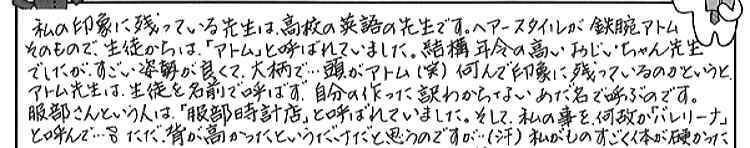 私の印象に残っている先生は、高校の英語の先生です。ヘアースタイルが鉄腕アトム
そのもので、生徒からは、「アトム」と呼ばれていました。結構年令の高いおじいちゃん先生
でしたが、すごい姿勢が良くて、大柄で…頭がアトム(笑)何んで印象に残っているのかというと、
アトム先生は、生徒を名前で呼ばず、自分の作った訳わからないあだ名で呼ぶのです。
服部さんという人は、「服部時計店」と呼ばれていました。そして、私の事を、何故か「バレリーナ」
と呼んで…。ただ、背が高かったというだけだと思うのですが…(汗)私がものすごく体が硬かった